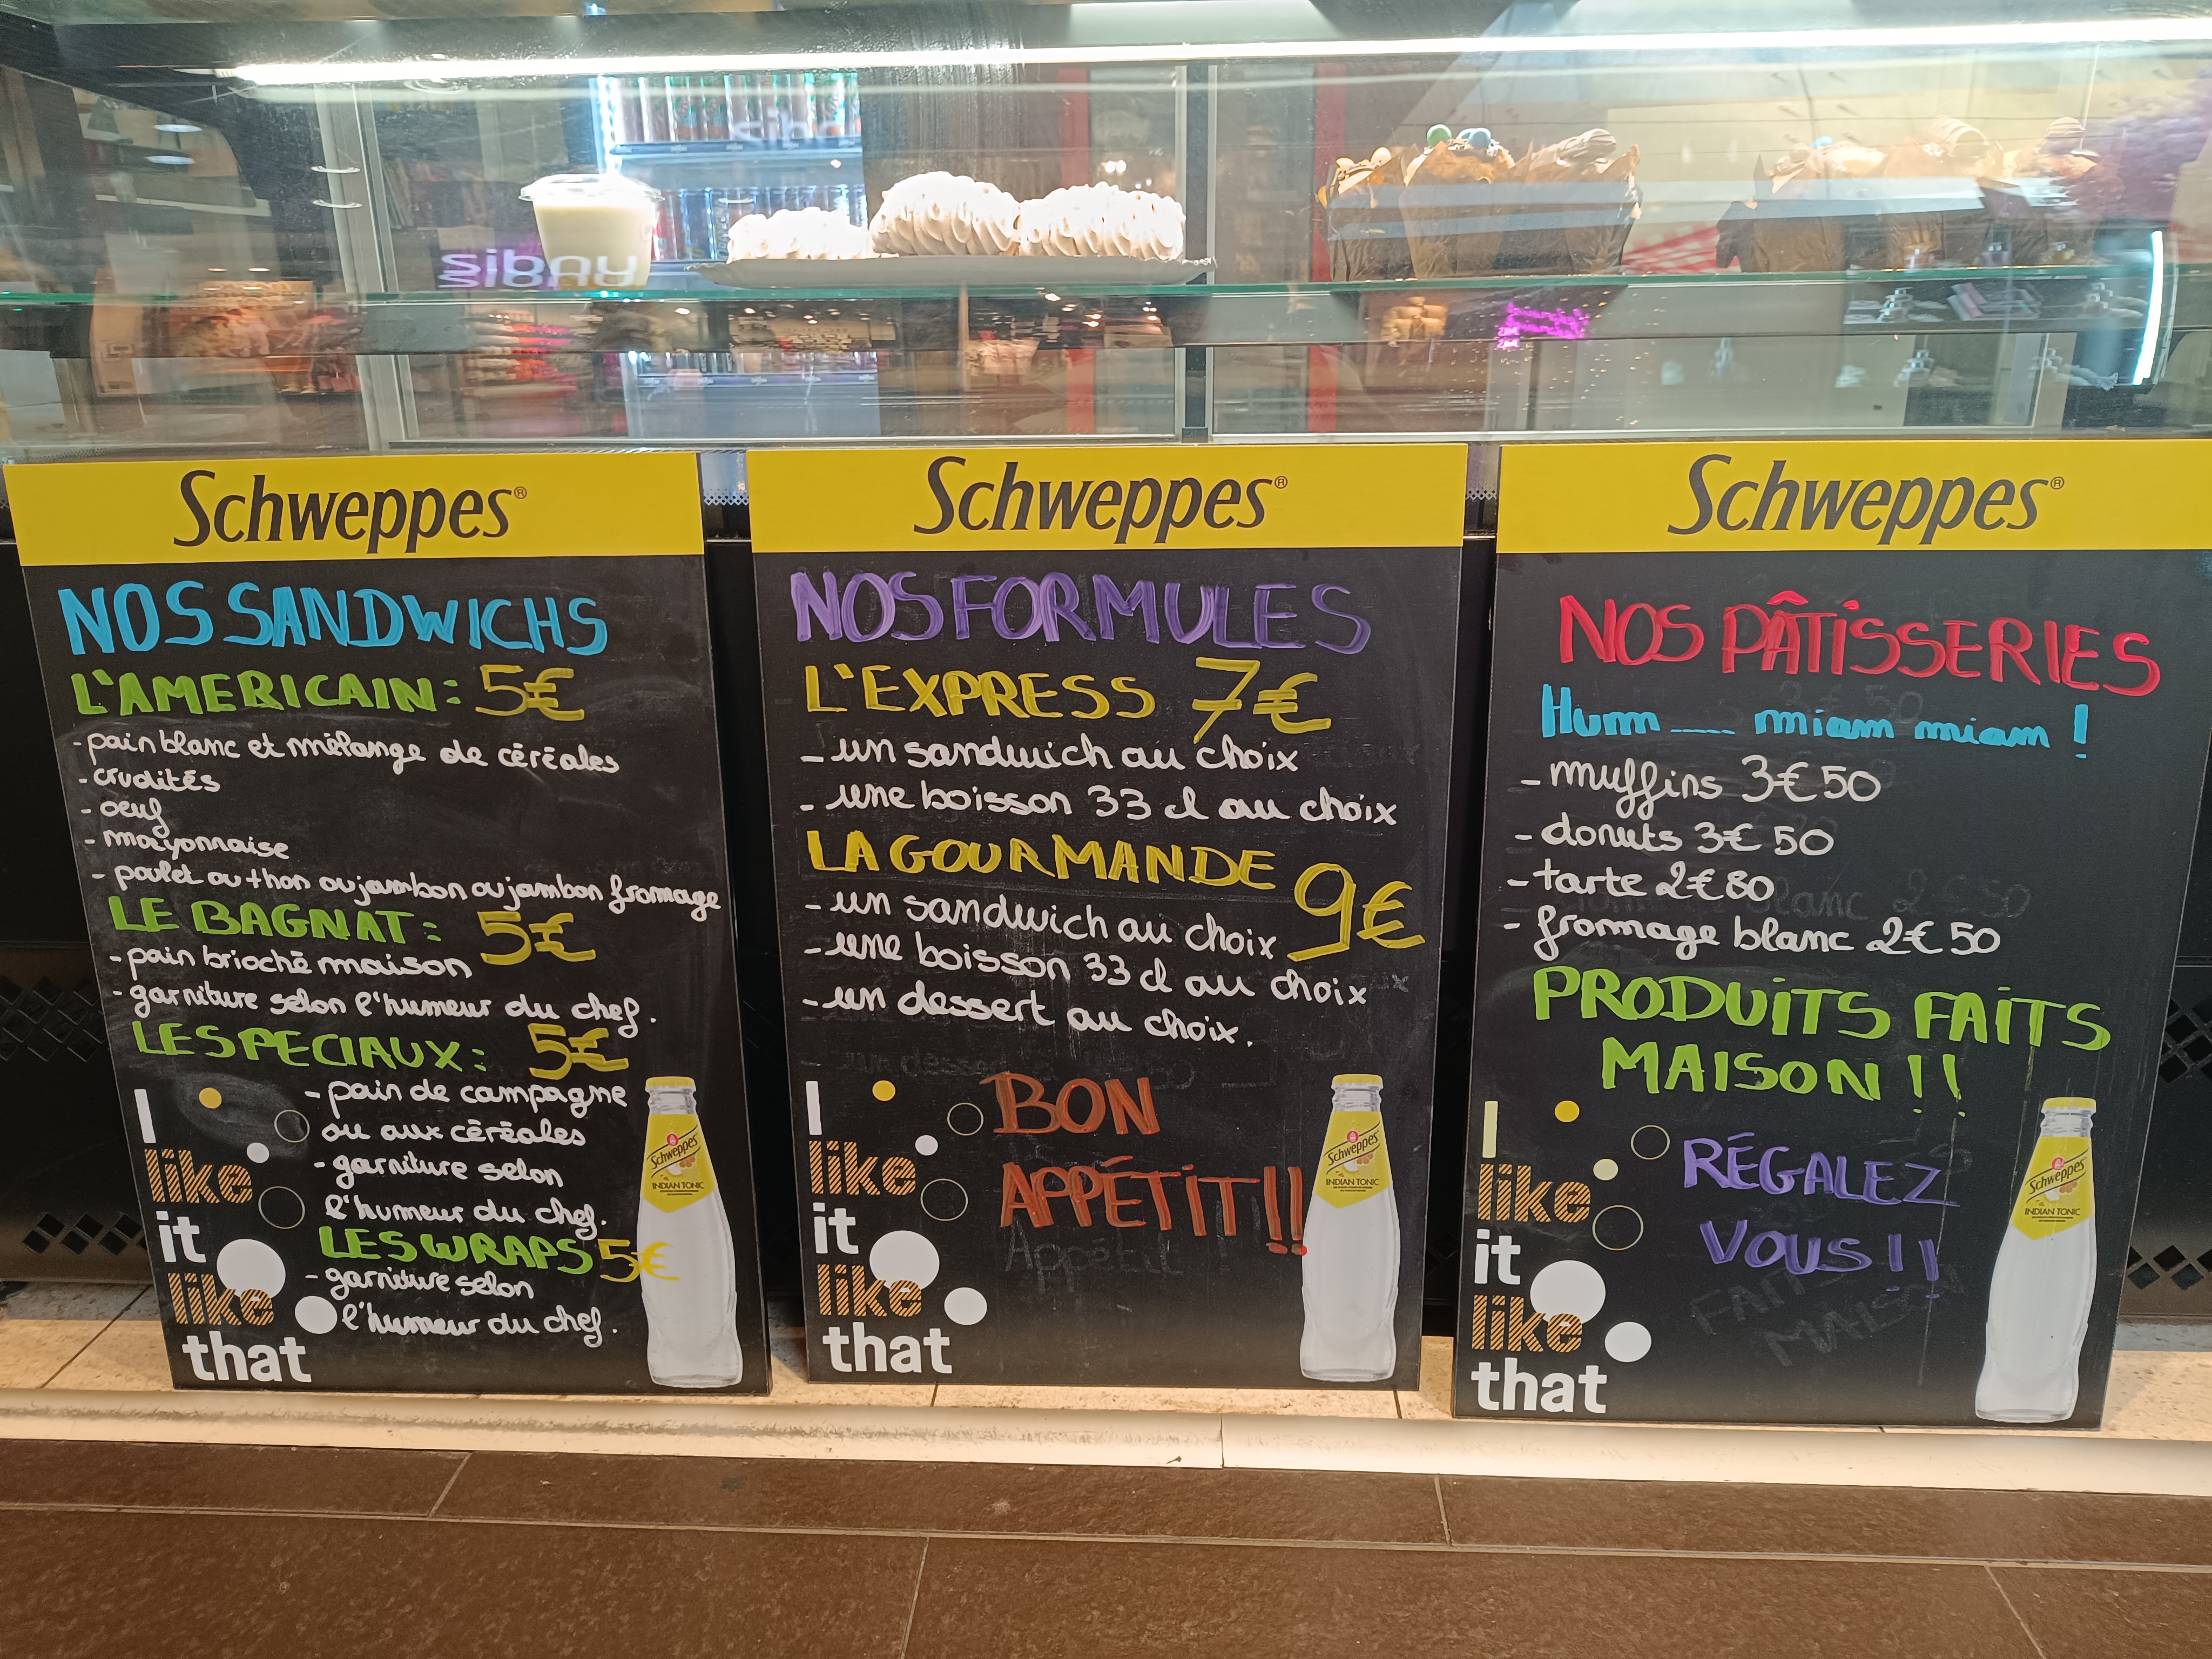 Schweppes®
NOS SANDWICHS
L'AMERICAIN: 5€
-pain blanc et mélange de céréales
-crudités
-oeuf
-mayonnaise
-poulet ou thon ou jambon ou jambon fromage
LE BAGNAT: 5€
-pain brioché maison
-garniture selon l'humeur du chef.
LES PECIAUX: 5€
-pain de campagne
ou aux céréales
-garniture selon
l'humeur du chef.
LES WRAPS 5€
-garniture selon
l'humeur du chef.
I
like
it
like
that
Schweppes
INDIAN TONIC
Schweppes®
NOS FORMULES
L'EXPRESS 7€
-un sandwich au choix
-une boisson 33 cl au choix
LA GOURMANDE 9€
-un sandwich au choix
-une boisson 33 cl au choix
-un dessert au choix.
BON
APPÉTIT!!
Appétit !
I
like
it
like
that
Schweppes
INDIAN TONIC
Schweppes®
NOS PÂTISSERIES
Hum .... miam miam !
-muffins 3€50
-donuts 3€50
-tarte 2€80
-fromage blanc 2€50
PRODUITS FAITS
MAISON !!
RÉGALEZ
VOUS !!
FAITS
MAISON
I
like
it
like
that
Schweppes
INDIAN TONIC